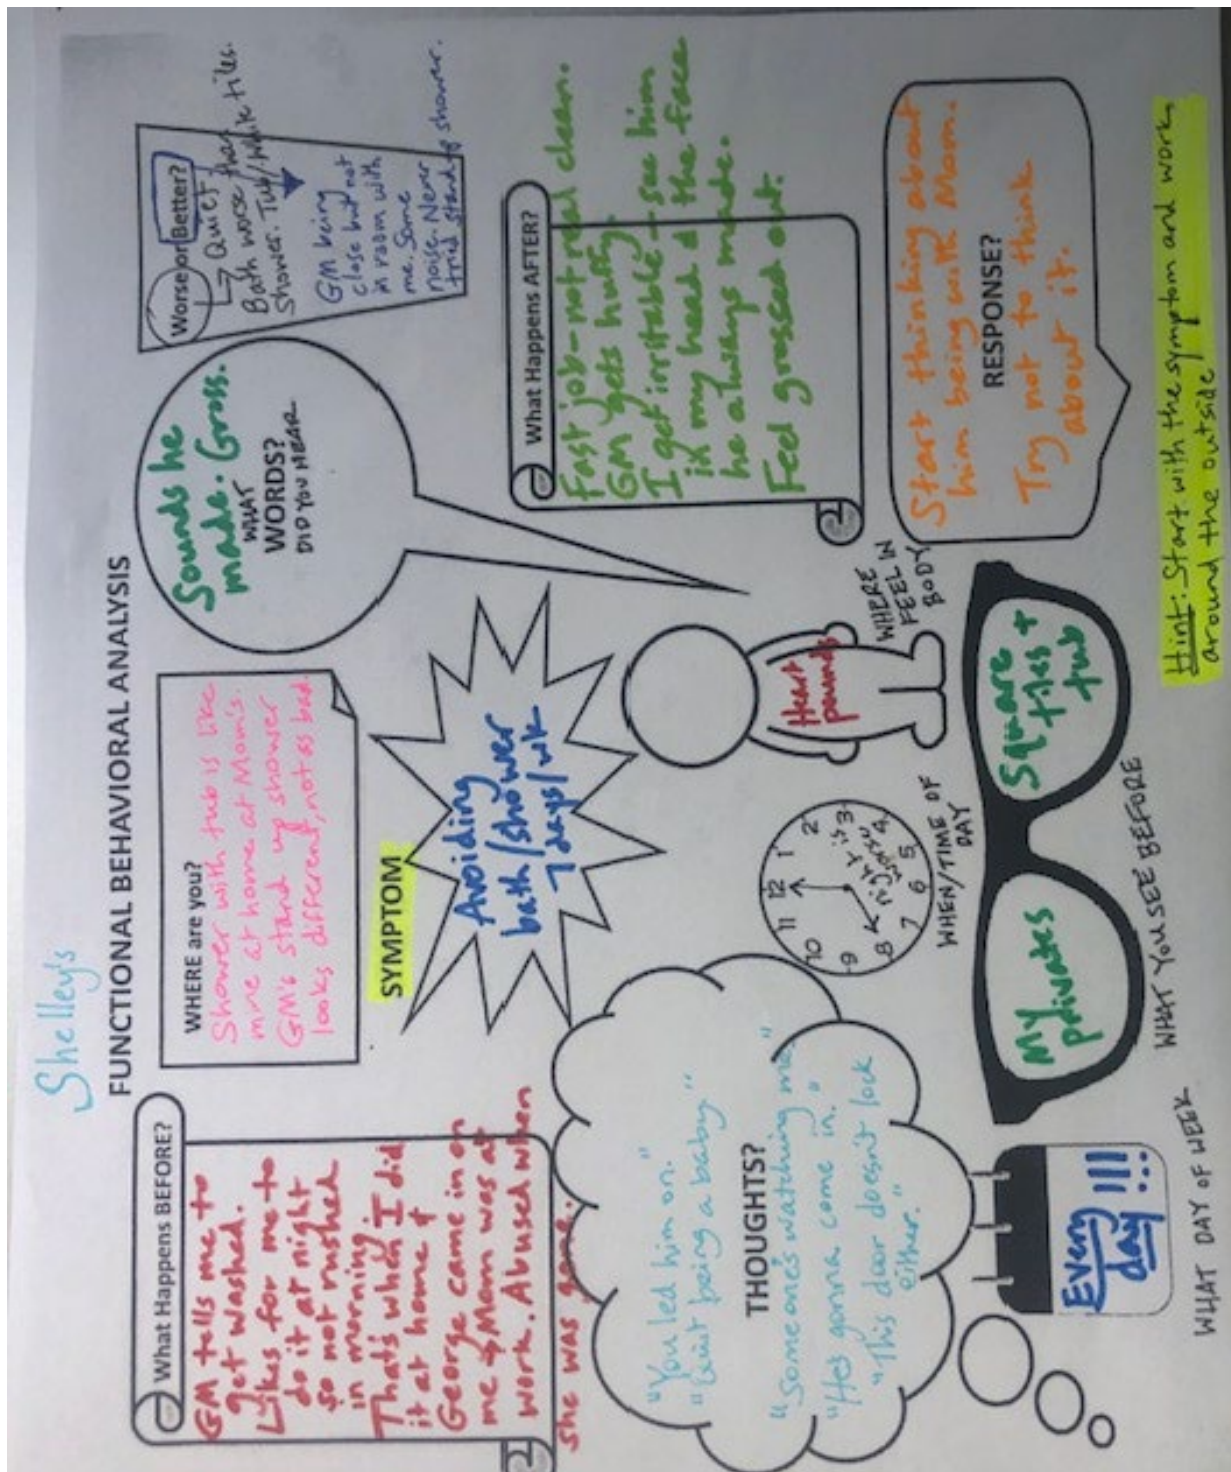 Shelley's
FUNCTIONAL BEHAVIORAL ANALYSIS
What Happens BEFORE?
GM tells me to
get washed.
Likes for me to
do it at night
so not rushed
in morning.
That's when I did
it at home &
George came in on
me & Mom was at
work. Abused when
she was gone.
WHERE are you?
Shower with tub is like
mine at home at Mom's.
GM's stand up shower
looks different, not as bad.
Sounds he
made. Gross.
WHAT
WORDS?
DID YOU HEAR
Worse or Better?
Quiet
Bath worse than
shower. Tub/White tiles.
GM being
close but not
in room with
me. Some
noise. Never
tried stand shower.
SYMPTOM
Avoiding
bath/shower
7 days/wk
What Happens AFTER?
Fast job-not real clean.
GM gets huffy.
I get irritable - see him
in my head & the face
he always made.
Feel grossed out.
THOUGHTS?
"You led him on."
"Quit being a baby."
"Someone's watching me."
"He's gonna come in."
"This door doesn't lock
either."
12
1
2
3
4
5
6
7
8
9
10
11
night is
worse
WHEN/TIME OF
DAY
Heart
pounds
WHERE
FEEL IN
BODY
RESPONSE?
Start thinking about
him being with Mom.
Try not to think
about it.
Every
day!!!
WHAT DAY OF WEEK
My
privates
Square
tiles +
tub
WHAT YOU SEE BEFORE
Hint: Start with the symptom and work
around the outside